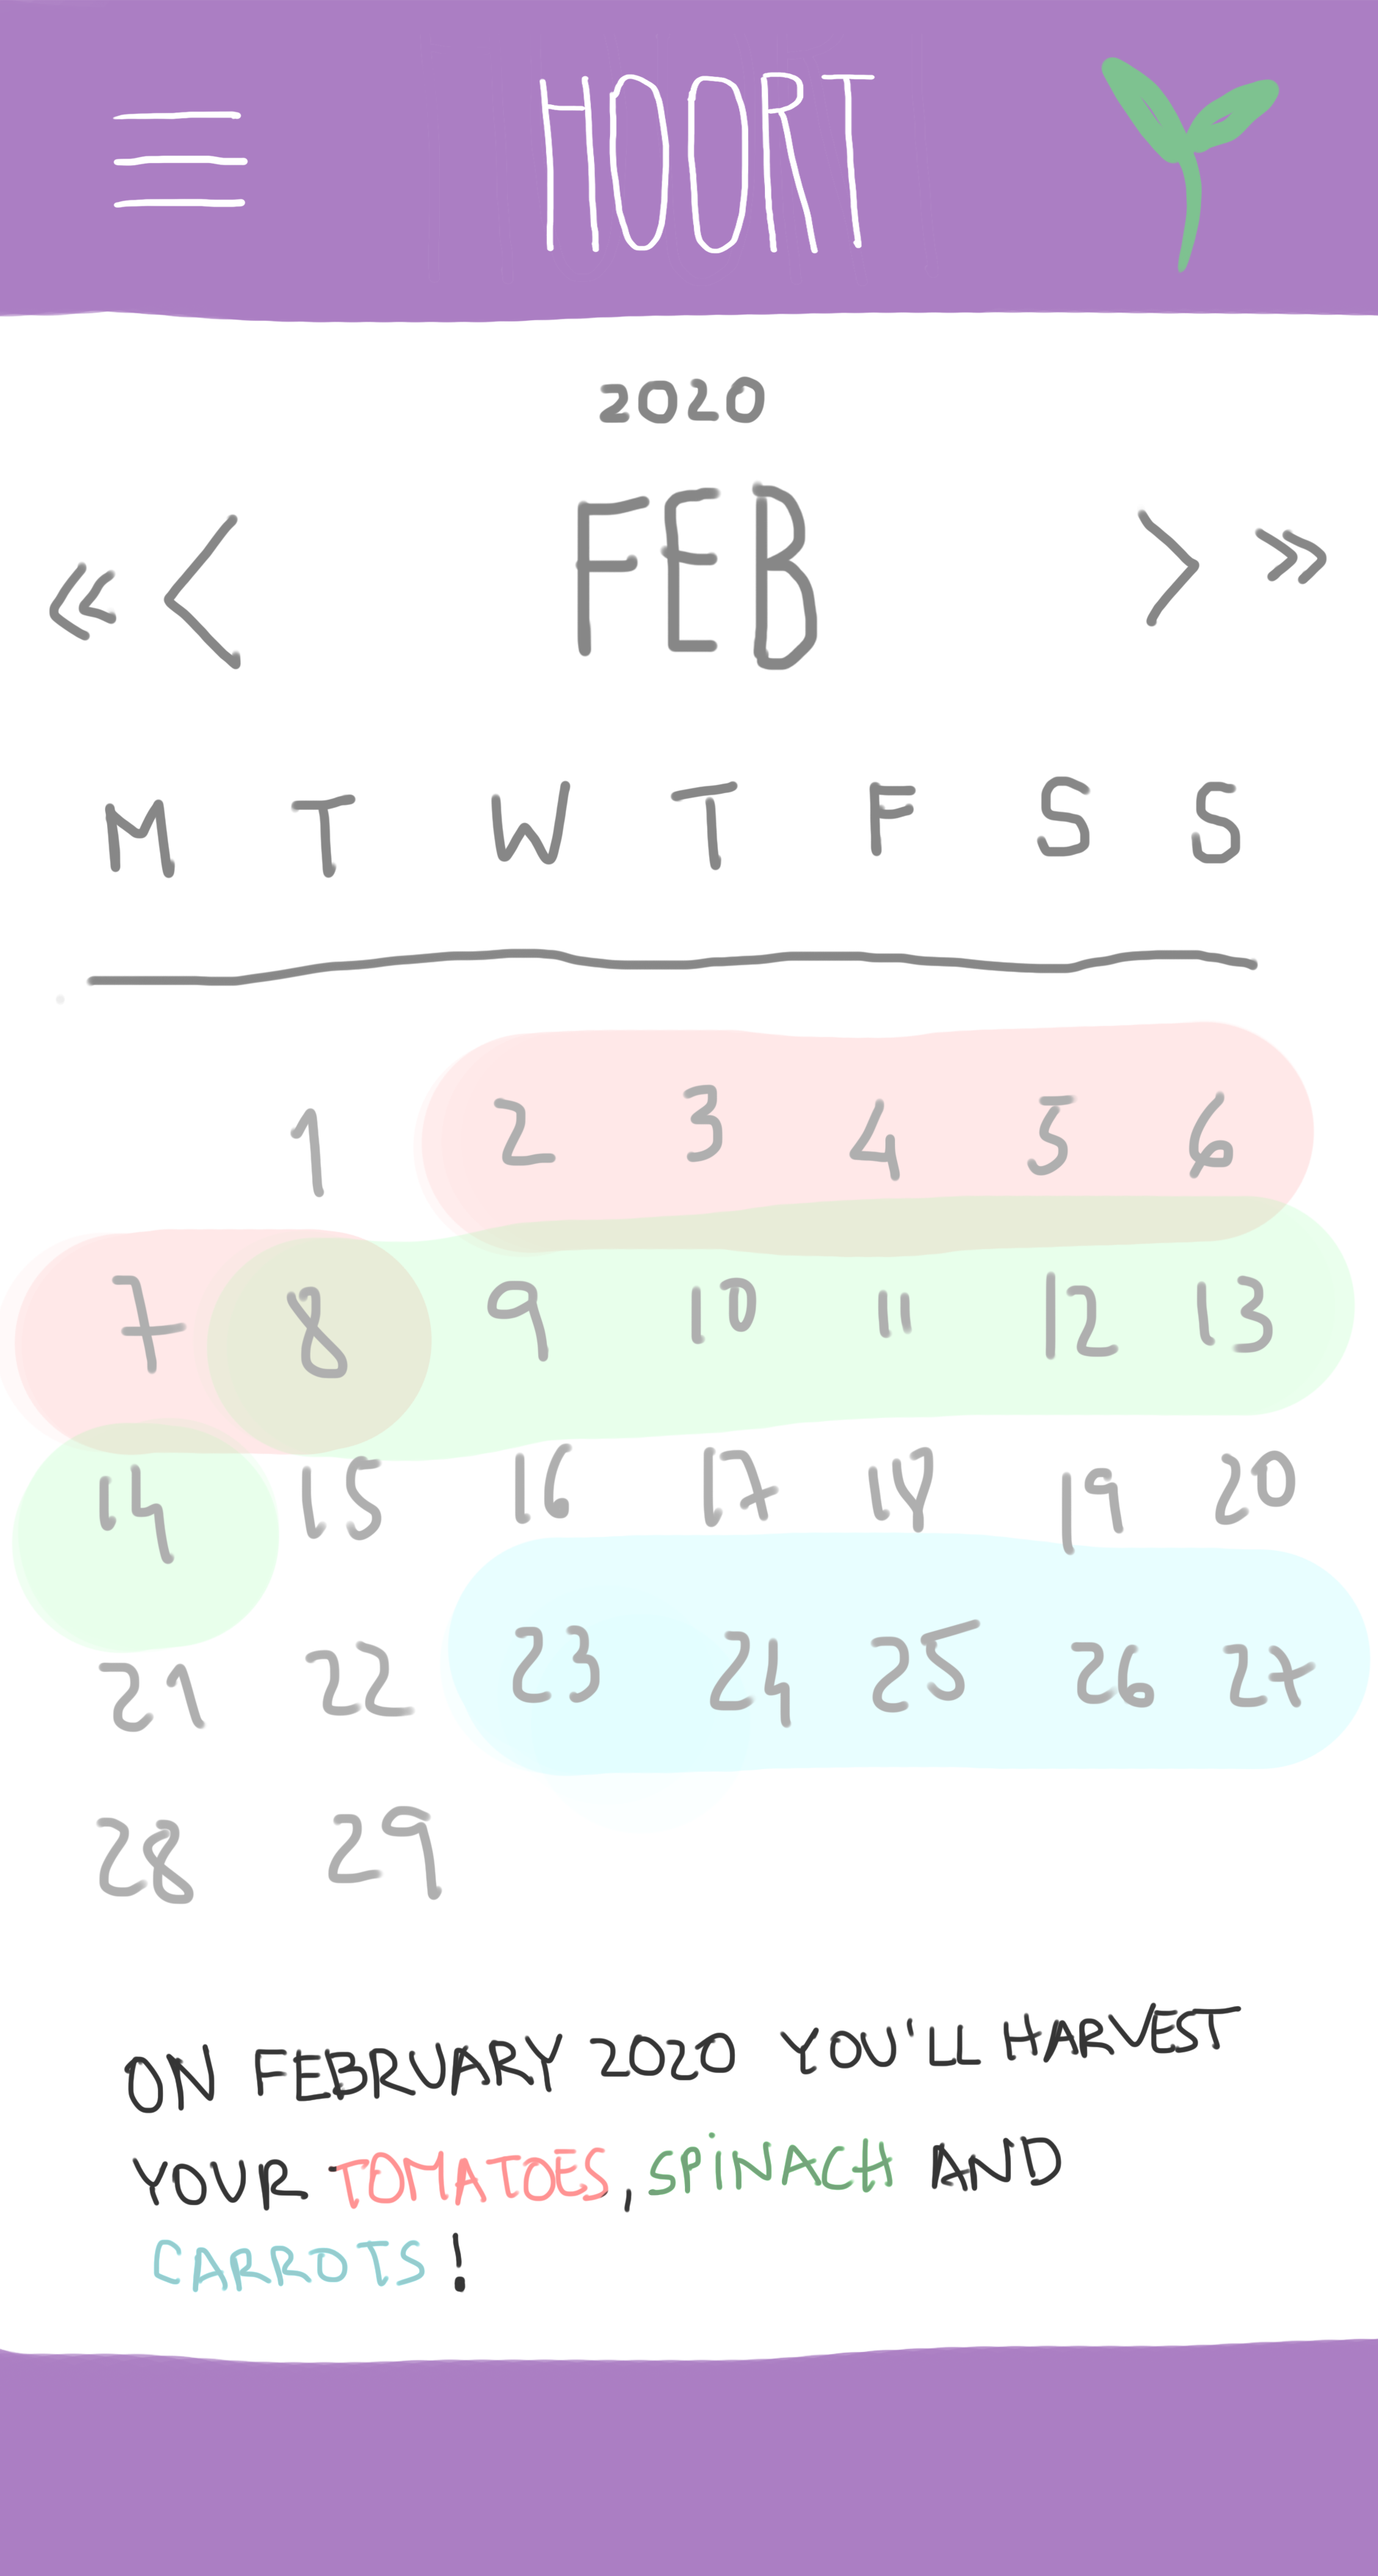 HOORT
2020
« < FEB > »
M T W T F S S
1 2 3 4 5 6
7 8 9 10 11 12 13
14 15 16 17 18 19 20
21 22 23 24 25 26 27
28 29
ON FEBRUARY 2020 YOU'LL HARVEST
YOUR TOMATOES, SPINACH AND
CARROTS!